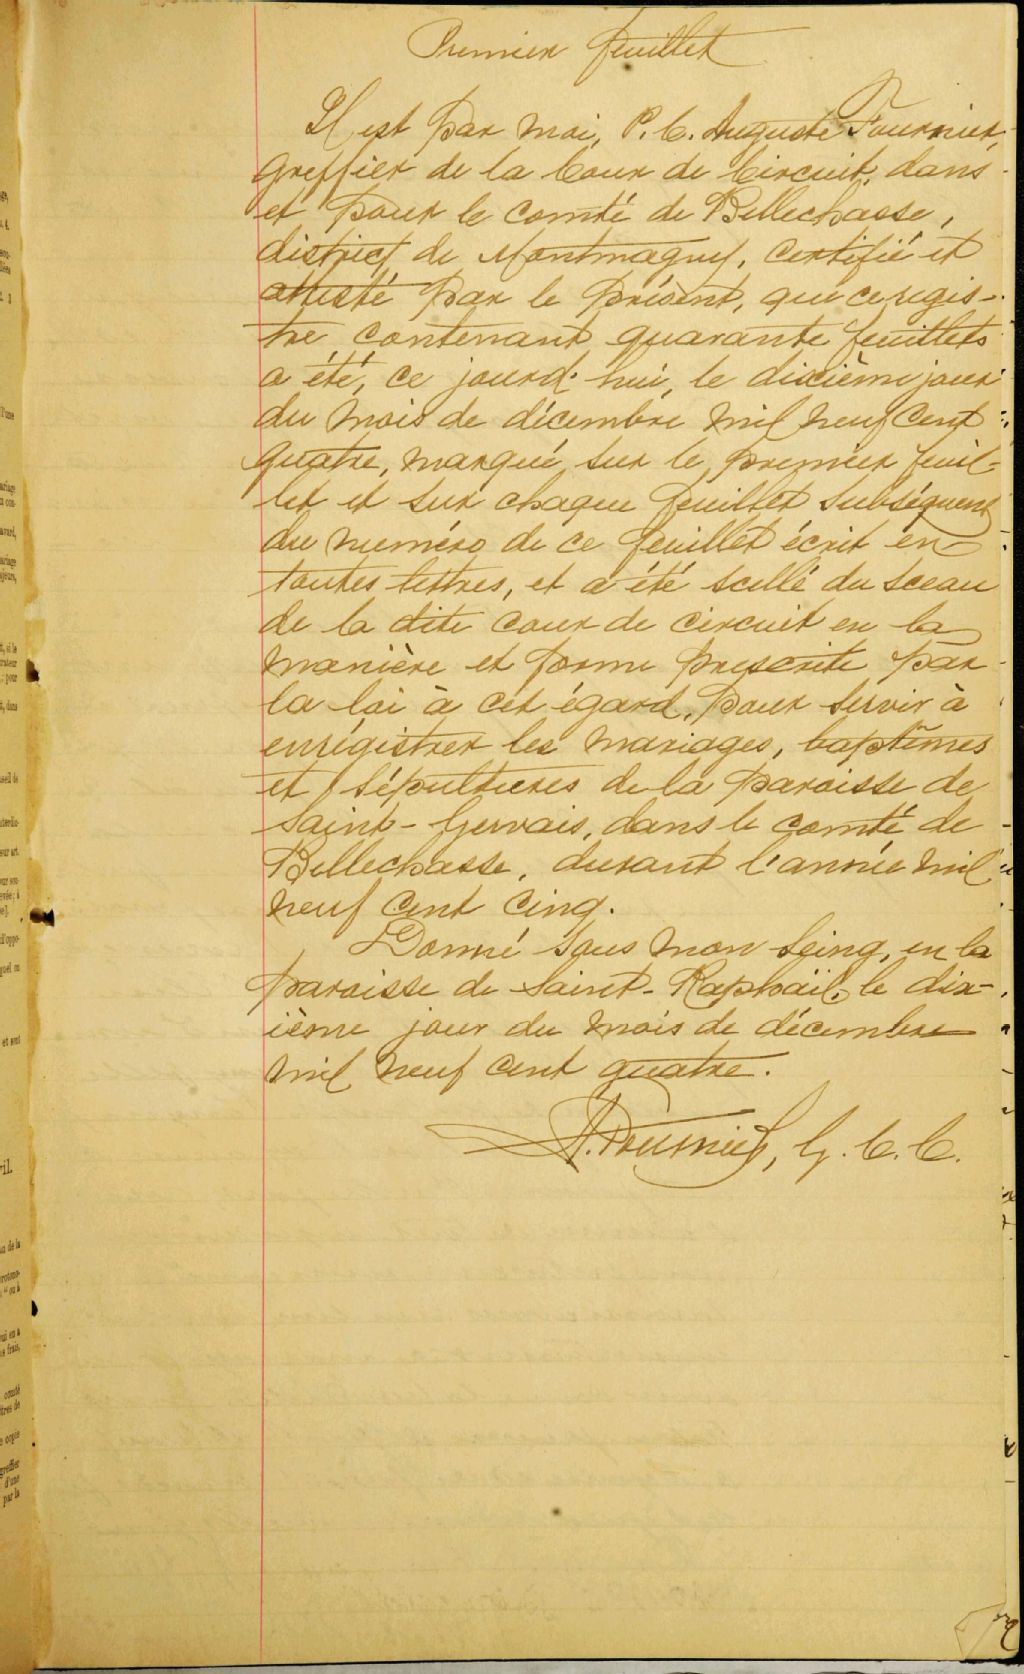 Premier feuillet
Il est par moi, P. C. Auguste Fournier,
greffier de la Cour de Circuit, dans
et pour le comté de Bellechasse,
district de Montmagny, certifié et
attesté par le présent, que ce regis-
tre contenant quarante feuillets
a été, ce jourd'hui, le dixième jour
du mois de décembre mil neuf cent
quatre, marqué sur le premier feuil-
let et sur chaque feuillet subséquent
du numéro de ce feuillet écrit en
toutes lettres, et a été scellé du sceau
de la dite cour de circuit en la
manière et forme prescrite par
la loi à cet égard, pour servir à
enrégistrer les mariages, baptêmes
et sépultures de la paroisse de
Saint-Gervais, dans le comté de
Bellechasse, durant l'année mil
neuf cent cinq.
Donné sous mon seing, en la
paroisse de Saint-Raphaël, le dix-
ième jour du mois de décembre
mil neuf cent quatre.
A. Fournier, G. C. C.